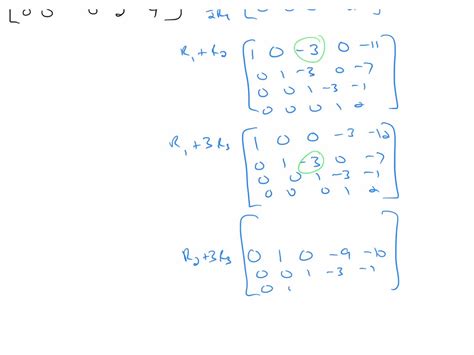 [0 0 0 2 4]
½R4
R1+R2 [1 0 -3 0 -11
0 1 -3 0 -7
0 0 1 -3 -1
0 0 0 1 2]
R1+3R3 [1 0 0 -3 -12
0 1 -3 0 -7
0 0 1 -3 -1
0 0 0 1 2]
R2+3R3 [
0 1 0 -9 -10
0 0 1 -3 -1
0 1 ]